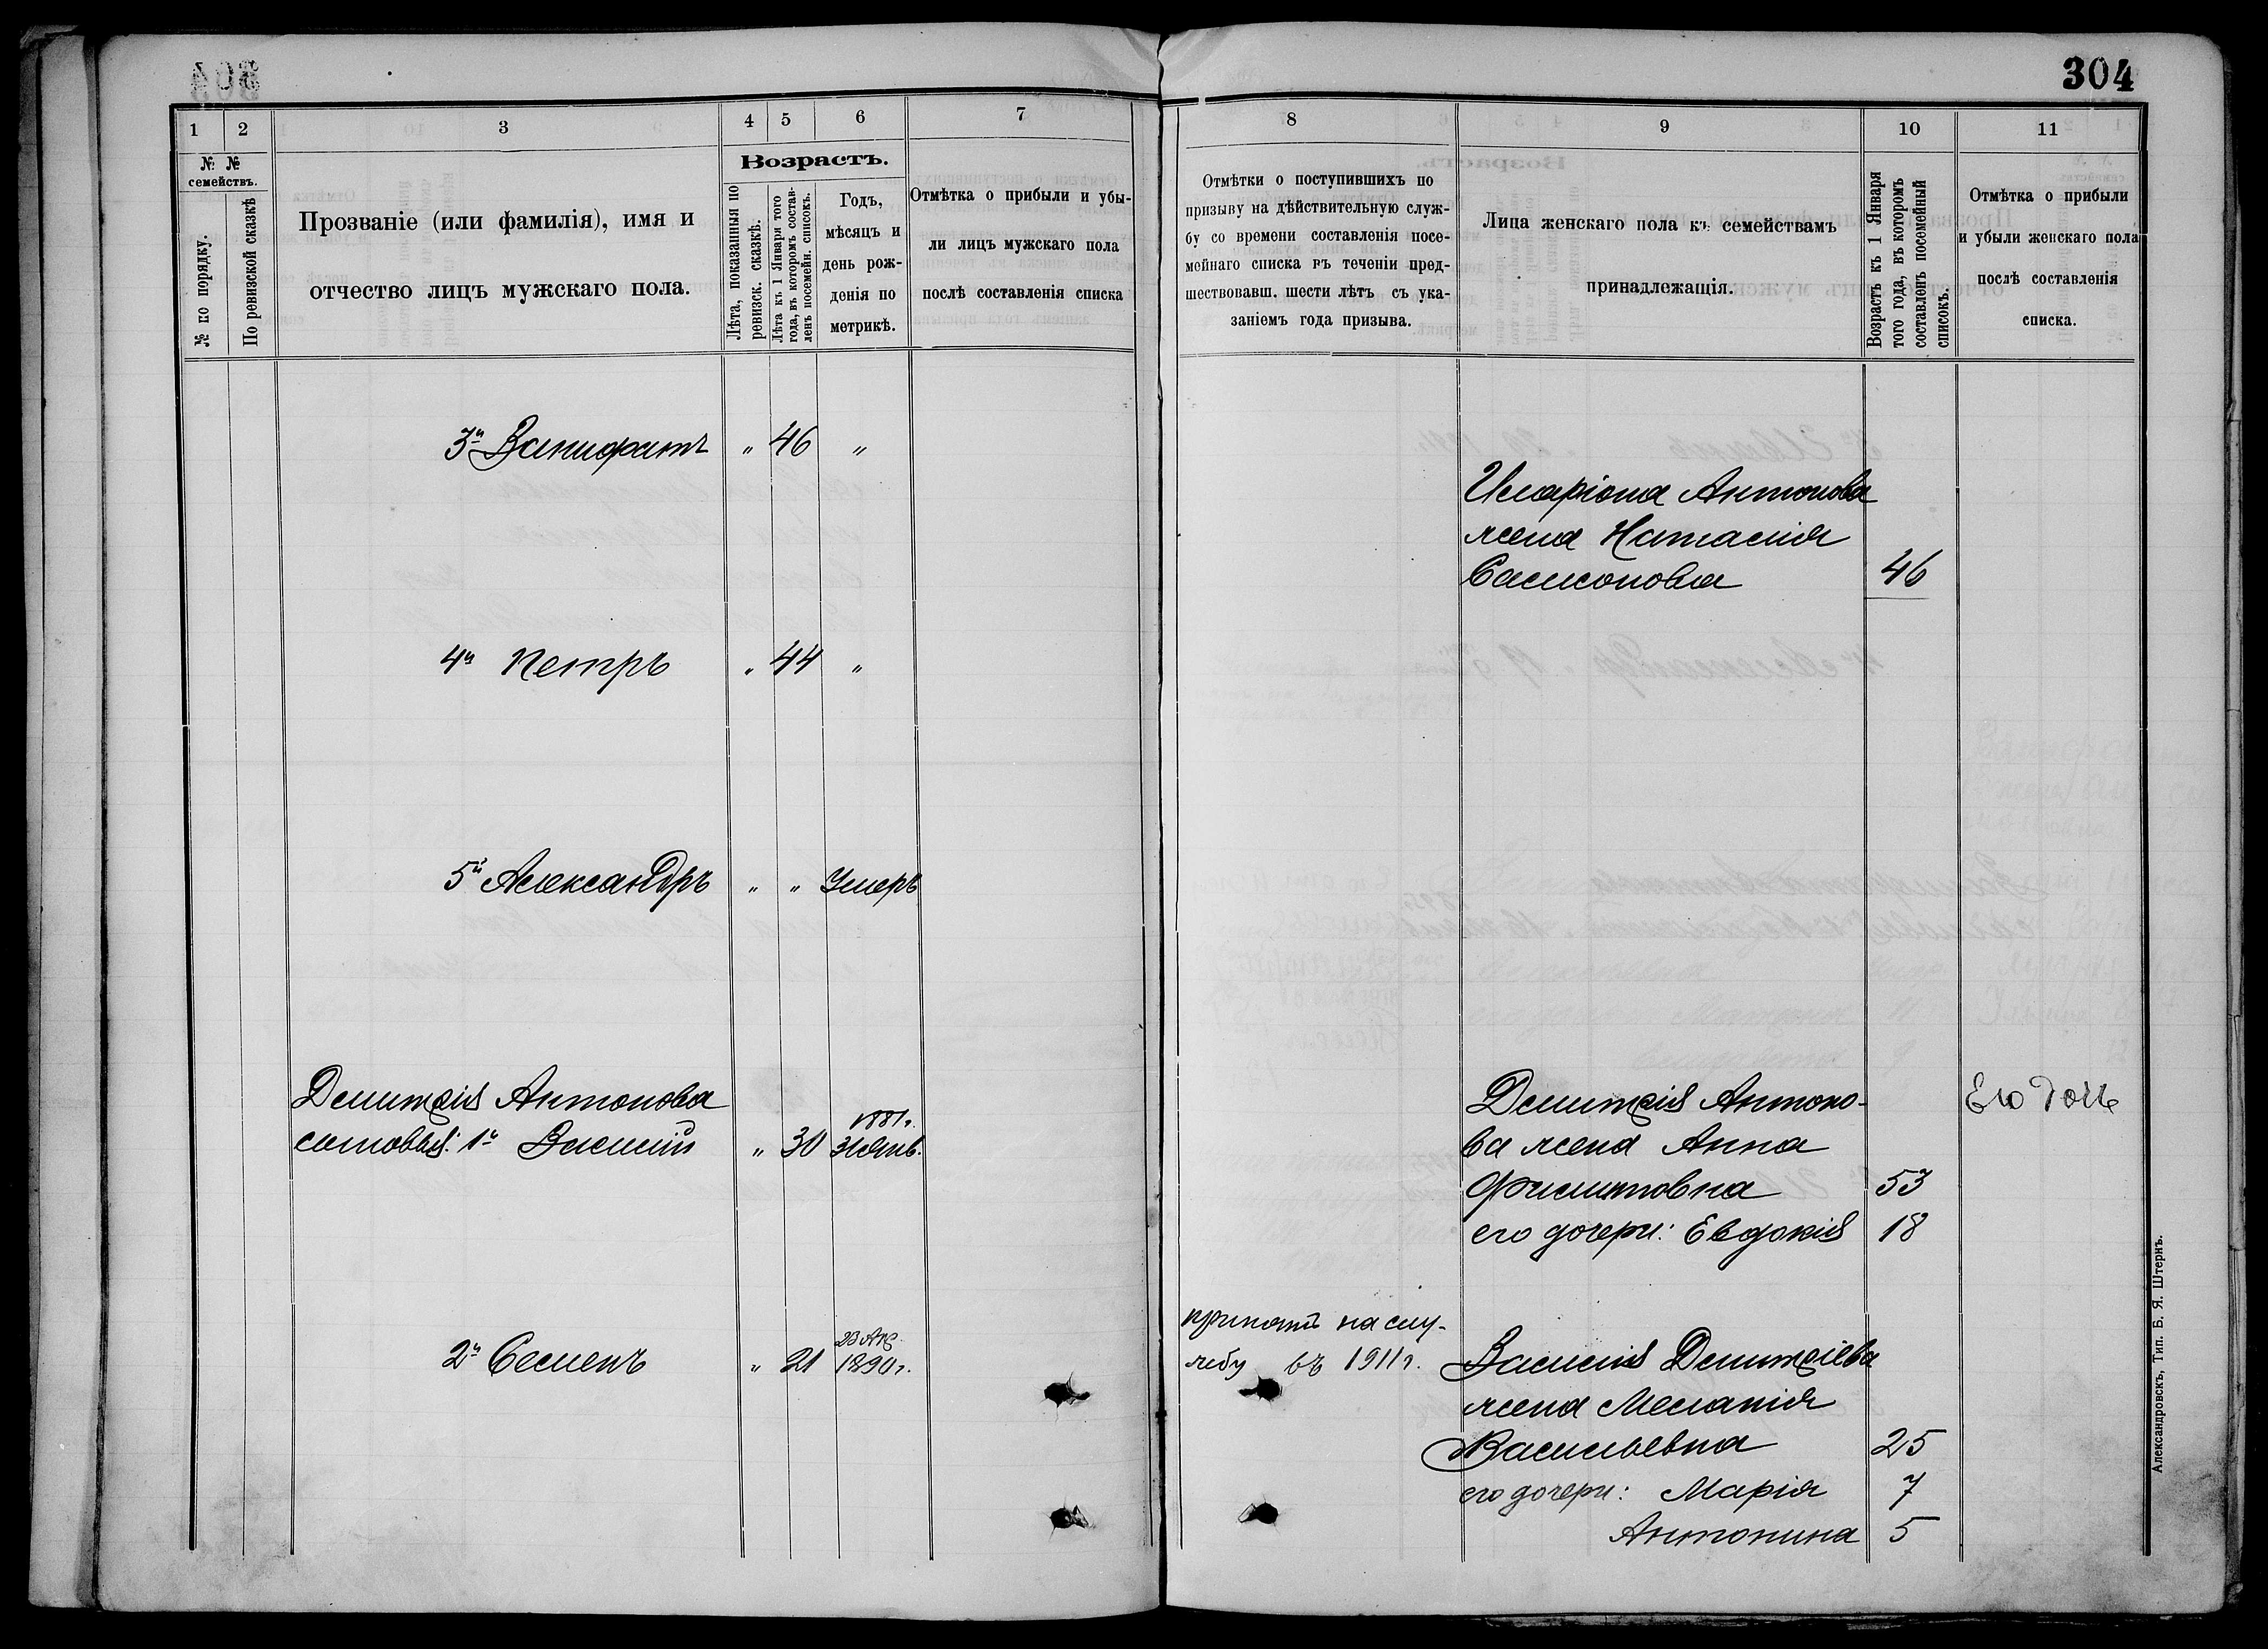 304
1 2 3 4 5 6 7
№ № семействъ.
№ по порядку.
По ревизской сказкѣ
Прозваніе (или фамилія), имя и
отчество лицъ мужскаго пола.
Возрастъ.
Лѣта, показанныя по
ревизск. сказкѣ.
Лѣта къ 1 Января того
года, въ которомъ состав-
ленъ посемейн. списокъ.
Годъ,
мѣсяцъ и
день рож-
денія по
метрикѣ.
Отмѣтка о прибыли и убы-
ли лицъ мужскаго пола
послѣ составленія списка
3й Вонифатъ " 46 "
4й Петръ " 44 "
5й Александръ " " Умеръ
Дмитрія Антонова
1881г.
сыновья: 1й Василій " 30 31 Янв.
23 Апр.
2й Семенъ " 21 1890г.
8 9 10 11
Отмѣтки о поступившихъ по
призыву на дѣйствительную служ-
бу со времени составленія посе-
мейнаго списка въ теченіи пред-
шествовавш. шести лѣтъ съ ука-
заніемъ года призыва.
Лица женскаго пола къ семействамъ
принадлежащія.
Возрастъ къ 1 Января
того года, въ которомъ
составленъ посемейный
списокъ.
Отмѣтка о прибыли
и убыли женскаго пола
послѣ составленія
списка.
Иларіона Антонова
жена Наталія
Самсоновна 46
Дмитрія Антоно-
ва жена Анна
Филиповна 53
его дочери: Евдокія 18
Его дочь
принятъ на слу-
жбу въ 1911г.
Василія Дмитріева
жена Меланія
Васильевна 25
его дочери: Марія 7
Антонина 5
Александровскъ, Тип. Б. Я. Штернъ.